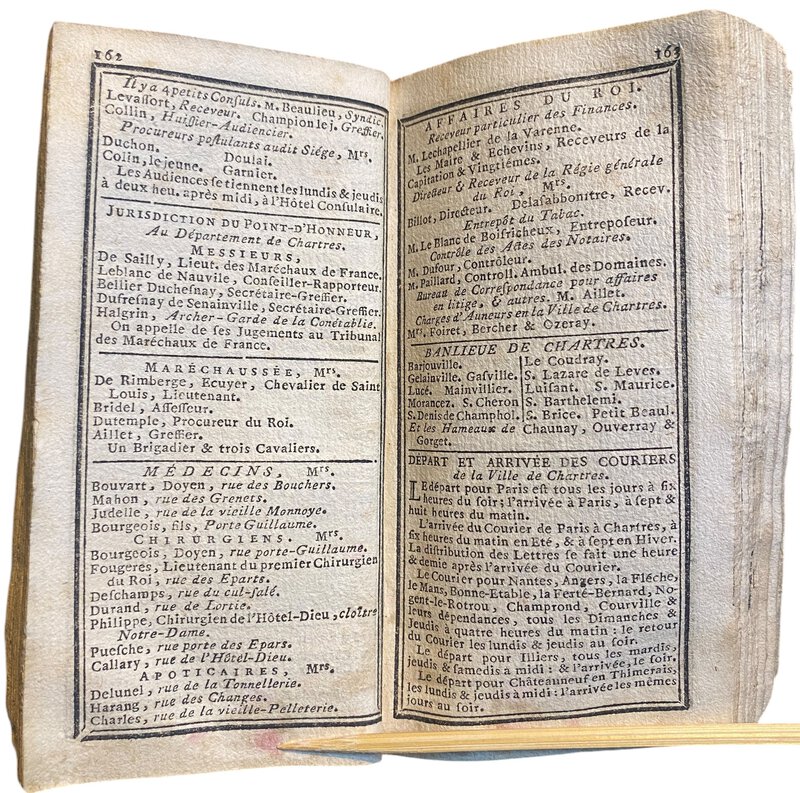 162
Il y a 4 petits Consuls. M. Beaulieu, Syndic.
Levassort, Receveur. Champion le j. Greffier.
Collin, Huissier-Audiencier.
Procureurs postulants audit Siége, Mrs.
Duchon. Doulai.
Colin, le jeune. Garnier.
Les Audiences se tiennent les lundis & jeudis
à deux heu. après midi, à l'Hôtel Consulaire.
JURISDICTION DU POINT-D'HONNEUR,
Au Département de Chartres.
MESSIEURS,
De Sailly, Lieut. des Maréchaux de France.
Leblanc de Nauvile, Conseiller-Rapporteur.
Bellier Duchesnay, Secrétaire-Greffier.
Dufresnay de Senainville, Secrétaire-Greffier.
Halgrin, Archer-Garde de la Conétablie.
On appelle de ses Jugements au Tribunal
des Maréchaux de France.
MARÉCHAUSSÉE, Mrs.
De Rimberge, Ecuyer, Chevalier de Saint
Louis, Lieutenant.
Bridel, Assesseur.
Dutemple, Procureur du Roi.
Aillet, Greffier.
Un Brigadier & trois Cavaliers.
MÉDECINS, Mrs.
Bouvart, Doyen, rue des Bouchers.
Mahon, rue des Grenets.
Judelle, rue de la vieille Monnoye.
Bourgeois, fils, Porte Guillaume.
CHIRURGIENS. Mrs.
Bourgeois, Doyen, rue porte-Guillaume.
Fougerés, Lieutenant du premier Chirurgien
du Roi, rue des Eparts.
Deschamps, rue du cul-salé.
Durand, rue de Lortie.
Philippe, Chirurgien de l'Hôtel-Dieu, cloître
Notre-Dame.
Puesche, rue porte des Epars.
Callary, rue de l'Hôtel-Dieu.
APOTICAIRES, Mrs.
Delunel, rue de la Tonnellerie.
Harang, rue des Changes.
Charles, rue de la vieille-Pelleterie.
163
AFFAIRES DU ROI.
Receveur particulier des Finances.
M. Lechapellier de la Varenne.
Les Maire & Echevins, Receveurs de la
Capitation & Vingtiémes.
Directeur & Receveur de la Régie générale
du Roi, Mrs.
Billot, Directeur. Delasabbonitre, Recev.
Entrepôt du Tabac.
M. Le Blanc de Boisricheux, Entreposeur.
Contrôle des Actes des Notaires.
M. Dufour, Contrôleur.
M. Paillard, Controll. Ambul. des Domaines.
Bureau de Correspondance pour affaires
en litige, & autres. M. Aillet.
Charges d'Auneurs en la Ville de Chartres.
Mrs. Foiret, Bercher & Ozeray.
BANLIEUE DE CHARTRES.
Barjouville. Le Coudray.
Gelainville. Gasville. S. Lazare de Leves.
Lucé. Mainvillier. Luisant. S. Maurice.
Morancez. S. Cheron S. Barthelemi.
S. Denis de Champhol. S. Brice. Petit Beaul.
Et les Hameaux de Chaunay, Ouverray &
Gorget.
DÉPART ET ARRIVÉE DES COURIERS
de la Ville de Chartres.
LE départ pour Paris est tous les jours à six
heures du soir; l'arrivée à Paris, à sept &
huit heures du matin.
L'arrivée du Courier de Paris à Chartres, à
six heures du matin en Eté, & à sept en Hiver.
La distribution des Lettres se fait une heure
& demie après l'arrivée du Courier.
Le Courier pour Nantes, Angers, la Fléche,
le Mans, Bonne-Etable, la Ferté-Bernard, No-
gent-le-Rotrou, Champrond, Courville &
leurs dépendances, tous les Dimanches &
Jeudis à quatre heures du matin: le retour
du Courier les lundis & jeudis au soir.
Le départ pour Illiers, tous les mardis,
jeudis & samedis à midi: & l'arrivée, le soir.
Le départ pour Châteauneuf en Thimerais,
les lundis & jeudis à midi: l'arrivée les mêmes
jours au soir.